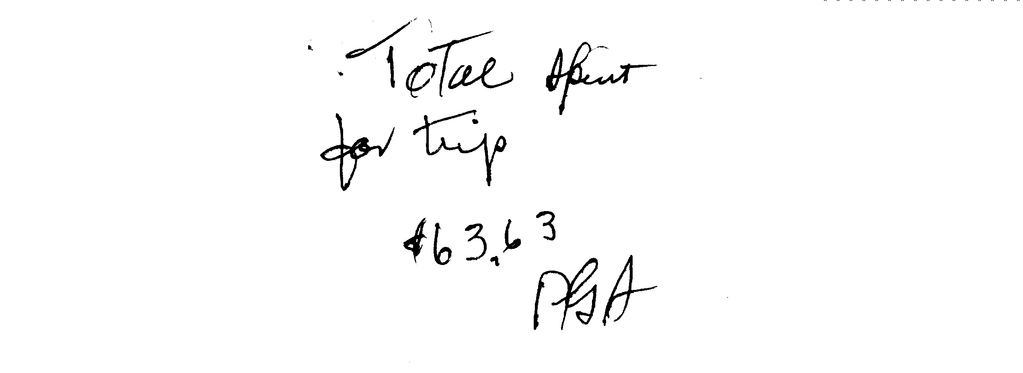 Total spent
for trip
$63.63
PGA